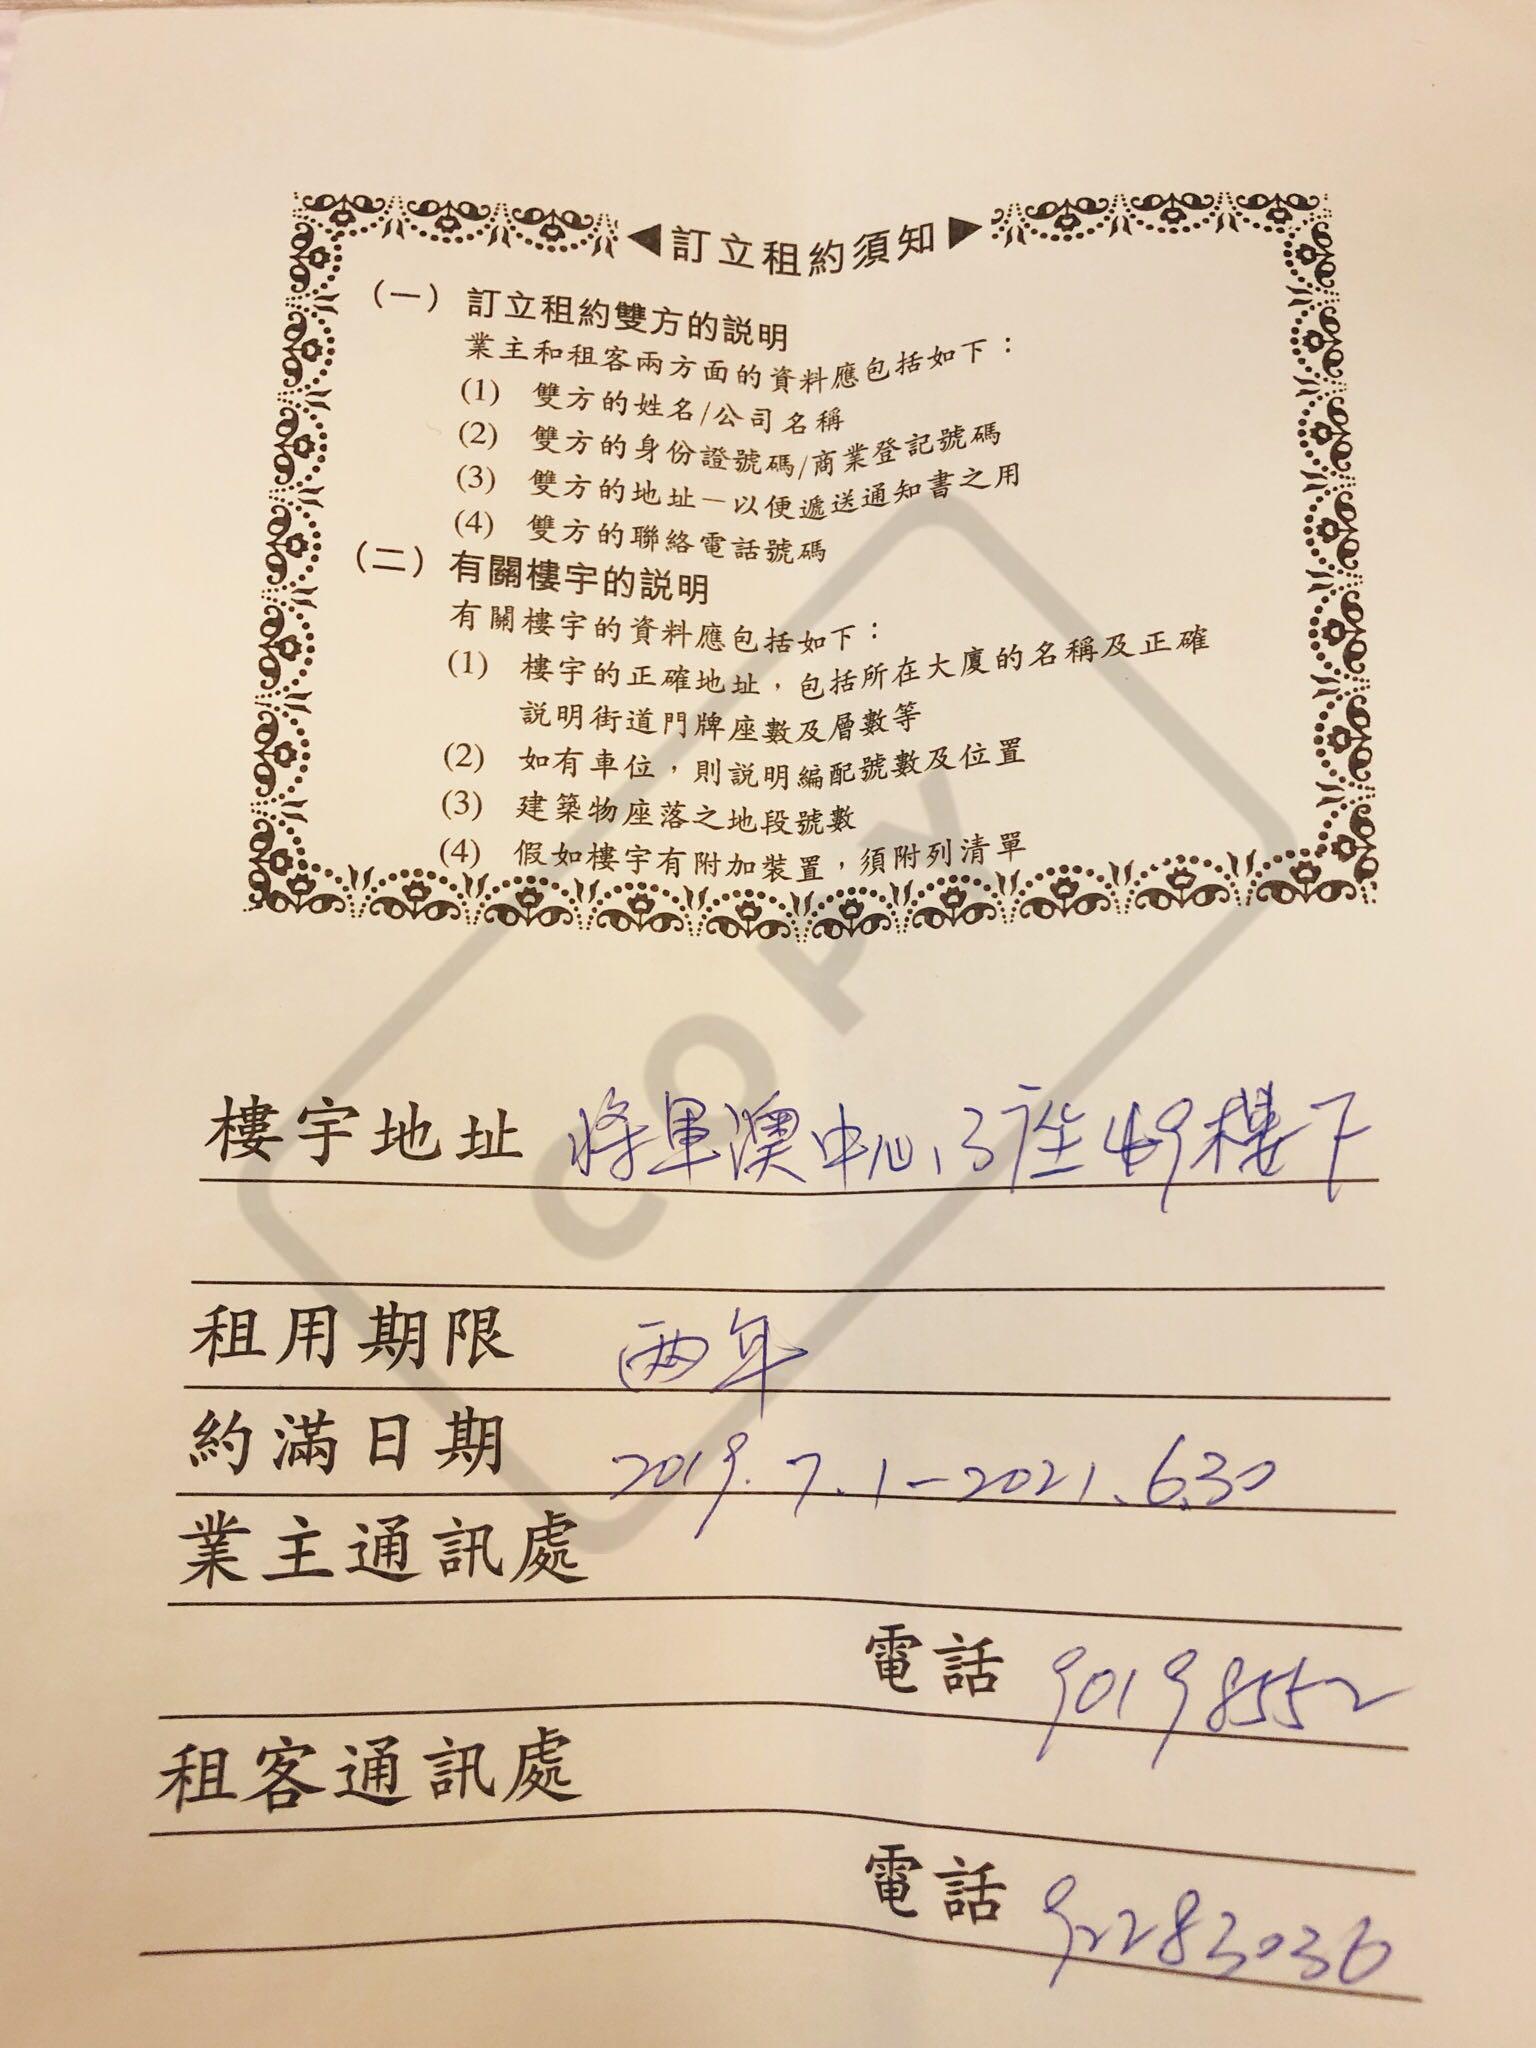 ◀訂立租約須知▶
(一) 訂立租約雙方的説明
業主和租客兩方面的資料應包括如下：
(1) 雙方的姓名/公司名稱
(2) 雙方的身份證號碼/商業登記號碼
(3) 雙方的地址－以便遞送通知書之用
(4) 雙方的聯絡電話號碼
(二) 有關樓宇的説明
有關樓宇的資料應包括如下：
(1) 樓宇的正確地址，包括所在大廈的名稱及正確
説明街道門牌座數及層數等
(2) 如有車位，則説明編配號數及位置
(3) 建築物座落之地段號數
(4) 假如樓宇有附加裝置，須附列清單
COPY
樓宇地址 將軍澳中心,3座49樓下
租用期限 兩年
約滿日期 2019.7.1－2021.6.30
業主通訊處
電話 90198552
租客通訊處
電話 92283036